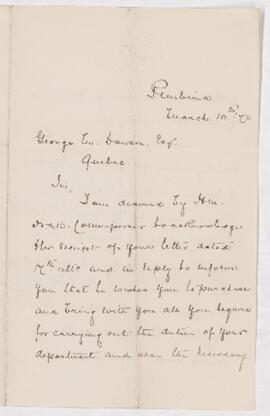 Pembina
March 10th 73
George M. Dawson Esq.
Quebec.
Sir,
I am desired by Her
Maj's Commissioner to acknowledge
the receipt of your letter dated
17th ulto and in reply to inform
you that he wishes you to purchase
and bring with you all you require
for carrying out the duties of your
department and also the necessary